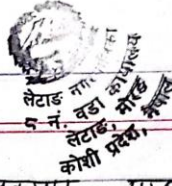 लेटाङ नगर
८ नं. वडा कार्यालय
लेटाङ, मोरङ
कोशी प्रदेश, नेपाल